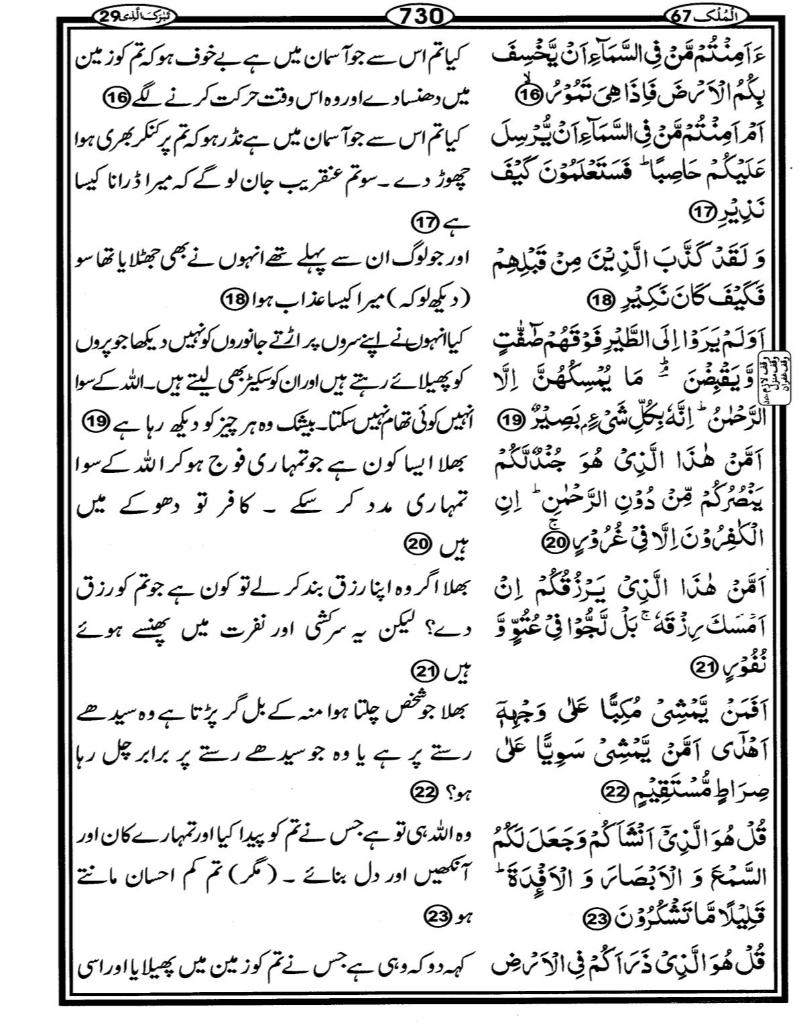 اَلۡمُلۡک 67
730
تَبٰرَکَ الَّذِی 29
ءَاَمِنۡتُمۡ مَّنۡ فِی السَّمَآءِ اَنۡ یَّخۡسِفَ
بِكُمُ الۡاَرۡضَ فَاِذَا هِیَ تَمُوۡرُ ۙ 16
اَمۡ اَمِنۡتُمۡ مَّنۡ فِی السَّمَآءِ اَنۡ یُّرۡسِلَ
عَلَیۡكُمۡ حَاصِبًا ؕ فَسَتَعۡلَمُوۡنَ كَیۡفَ
نَذِیۡرِ 17
وَ لَقَدۡ كَذَّبَ الَّذِیۡنَ مِنۡ قَبۡلِهِمۡ
فَكَیۡفَ كَانَ نَكِیۡرِ 18
اَوَلَمۡ یَرَوۡا اِلَی الطَّیۡرِ فَوۡقَهُمۡ صٰٓفّٰتٍ
وَّ یَقۡبِضۡنَ ؔۘ مَا یُمۡسِكُهُنَّ اِلَّا
الرَّحۡمٰنُ ؕ اِنَّهٗ بِكُلِّ شَیۡءٍۭ بَصِیۡرٌ 19
اَمَّنۡ هٰذَا الَّذِیۡ هُوَ جُنۡدٌ لَّكُمۡ
یَنۡصُرُكُمۡ مِّنۡ دُوۡنِ الرَّحۡمٰنِ ؕ اِنِ
الۡكٰفِرُوۡنَ اِلَّا فِیۡ غُرُوۡرٍ ۚ 20
اَمَّنۡ هٰذَا الَّذِیۡ یَرۡزُقُكُمۡ اِنۡ
اَمۡسَكَ رِزۡقَهٗ ۚ بَلۡ لَّجُّوۡا فِیۡ عُتُوٍّ وَّ
نُفُوۡرٍ 21
اَفَمَنۡ یَّمۡشِیۡ مُكِبًّا عَلٰی وَجۡهِهٖۤ
اَهۡدٰۤی اَمَّنۡ یَّمۡشِیۡ سَوِیًّا عَلٰی
صِرَاطٍ مُّسۡتَقِیۡمٍ 22
قُلۡ هُوَ الَّذِیۡۤ اَنۡشَاَكُمۡ وَ جَعَلَ لَكُمُ
السَّمۡعَ وَ الۡاَبۡصَارَ وَ الۡاَفۡـِٕدَةَ ؕ
قَلِیۡلًا مَّا تَشۡكُرُوۡنَ 23
قُلۡ هُوَ الَّذِیۡ ذَرَاَكُمۡ فِی الۡاَرۡضِ
کیا تم اس سے جو آسمان میں ہے بے خوف ہو کہ تم کو زمین
میں دھنسا دے اور وہ اس وقت حرکت کرنے لگے 16
کیا تم اس سے جو آسمان میں ہے نڈر ہو کہ تم پر کنکر بھری ہوا
چھوڑ دے ۔ سو تم عنقریب جان لو گے کہ میرا ڈرانا کیسا
ہے 17
اور جو لوگ ان سے پہلے تھے انہوں نے بھی جھٹلایا تھا سو
(دیکھ لو کہ) میرا کیسا عذاب ہوا 18
کیا انہوں نے اپنے سروں پر اڑتے جانوروں کو نہیں دیکھا جو پروں
کو پھیلائے رہتے ہیں اور ان کو سکیڑ بھی لیتے ہیں۔ اللہ کے سوا
انہیں کوئی تھام نہیں سکتا۔ بیشک وہ ہر چیز کو دیکھ رہا ہے 19
بھلا ایسا کون ہے جو تمہاری فوج ہو کر اللہ کے سوا
تمہاری مدد کر سکے ۔ کافر تو دھوکے میں
ہیں 20
بھلا اگر وہ اپنا رزق بند کر لے تو کون ہے جو تم کو رزق
دے؟ لیکن یہ سرکشی اور نفرت میں پھنسے ہوئے
ہیں 21
بھلا جو شخص چلتا ہوا منہ کے بل گر پڑتا ہے وہ سیدھے
رستے پر ہے یا وہ جو سیدھے رستے پر برابر چل رہا
ہو؟ 22
وہ اللہ ہی تو ہے جس نے تم کو پیدا کیا اور تمہارے کان اور
آنکھیں اور دل بنائے ۔ (مگر) تم کم احسان مانتے
ہو 23
کہہ دو کہ وہی ہے جس نے تم کو زمین میں پھیلایا اور اسی
وقف لازم
وقف منزل
وقف غفران